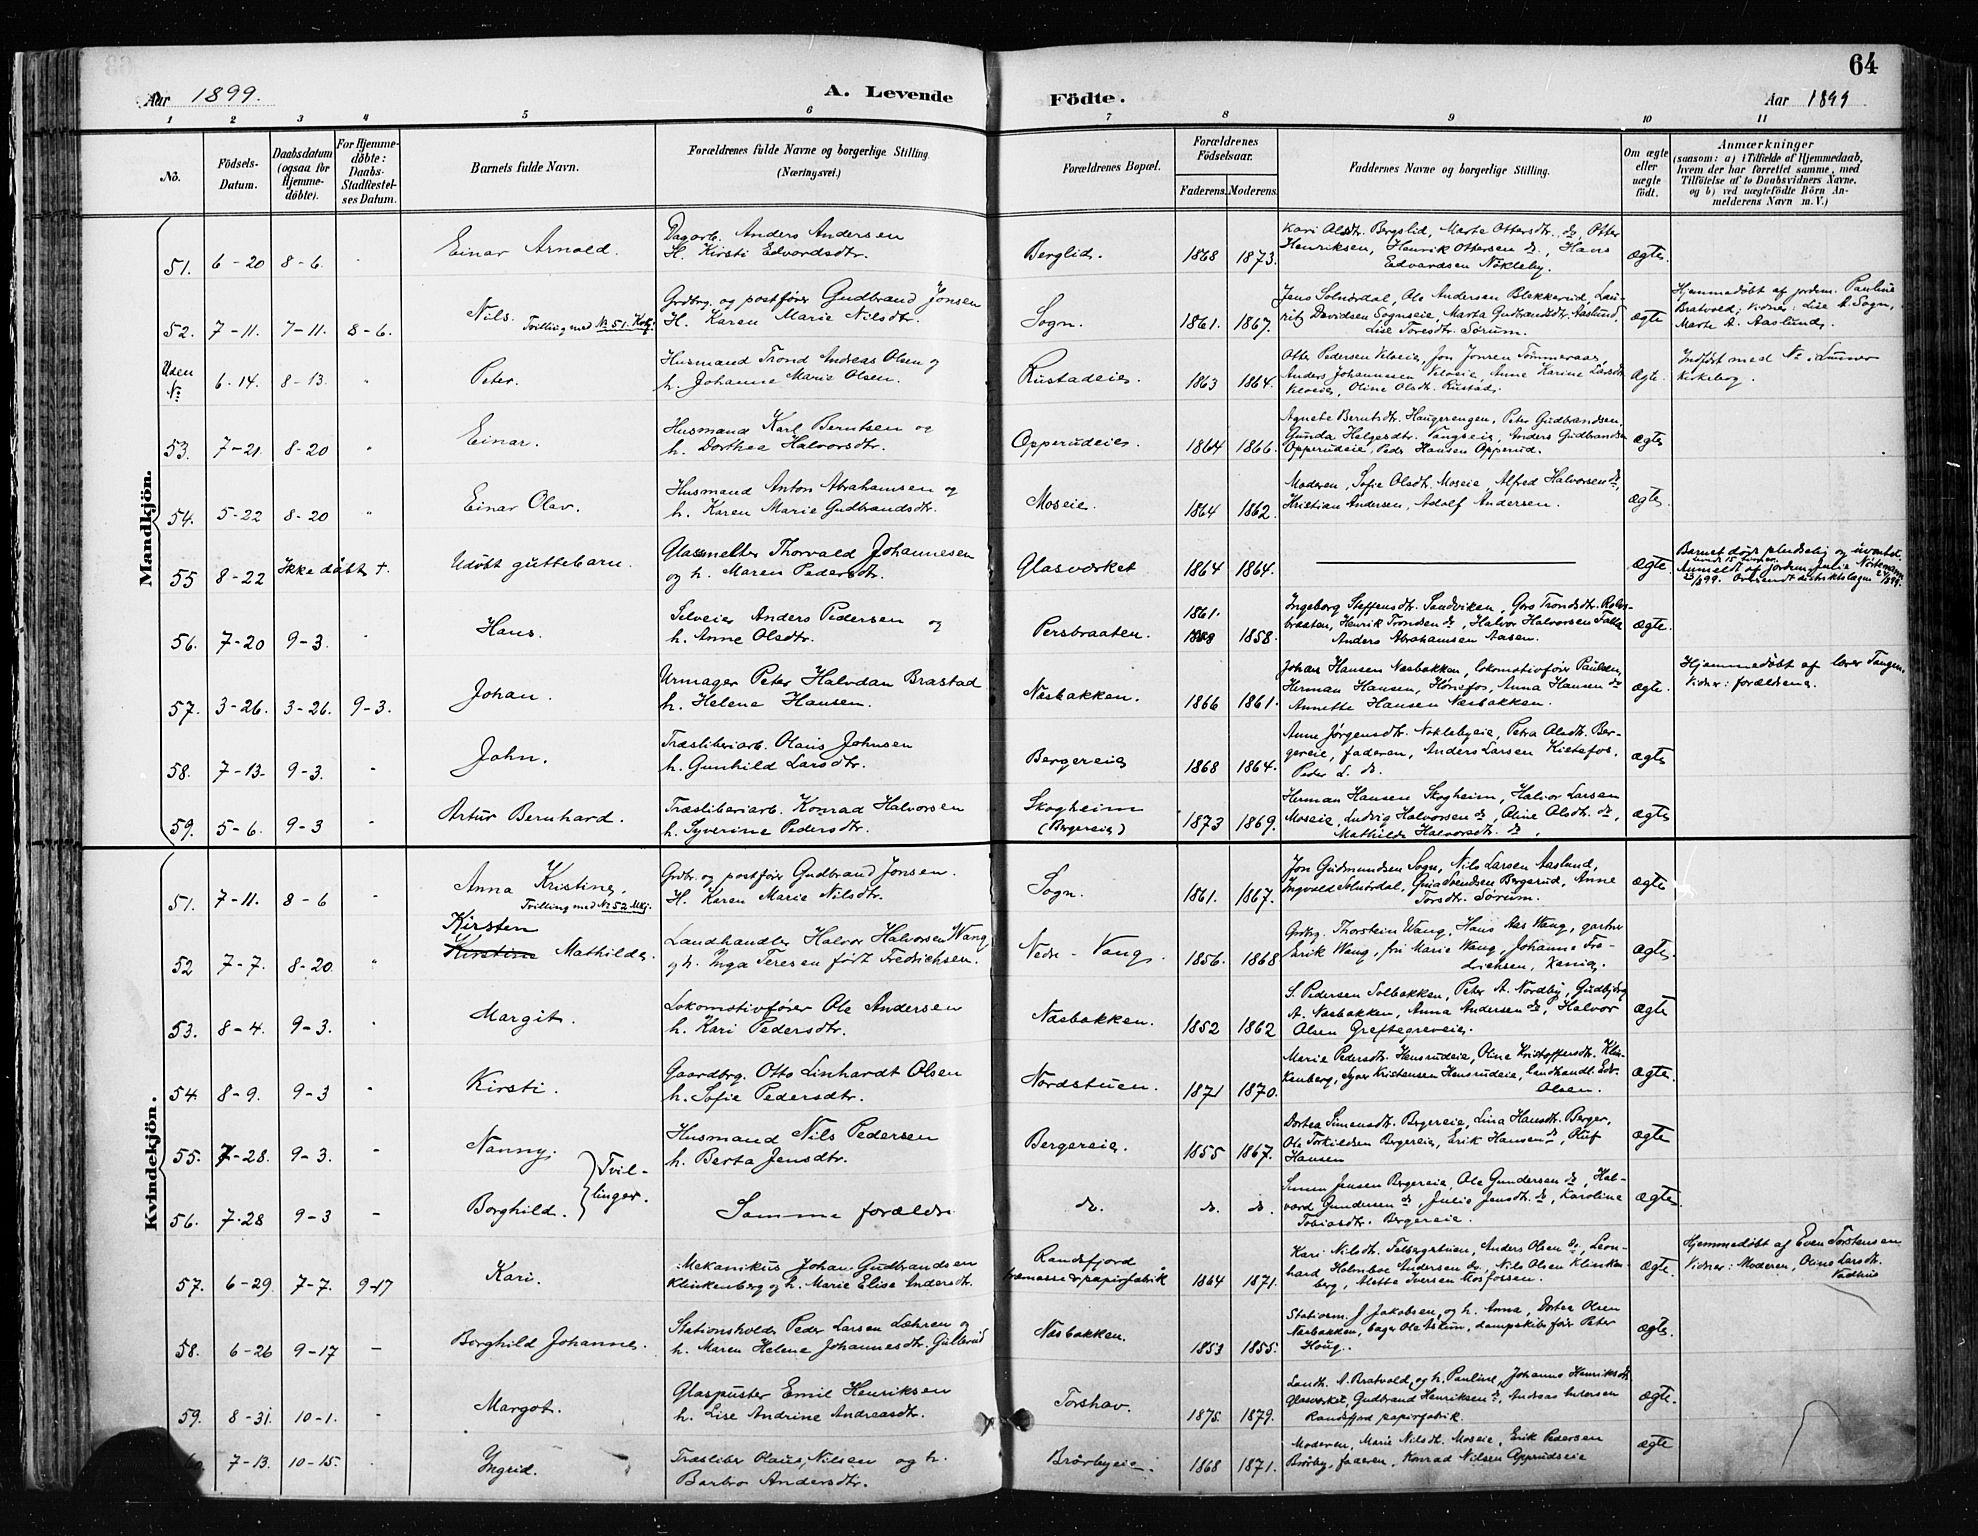 64
Aar 1899. A. Levende Födte. Aar 1899
1 2 3 4 5 6 7 8 9 10 11
No.
Födsels-
Datum.
Daabsdatum
(ogsaa for
Hjemme-
døbte).
For Hjemme-
döbte:
Daabs-
Stadfæstel-
ses Datum.
Barnets fulde Navn.
Forældrenes fulde Navne og borgerlige Stilling
(Næringsvei.)
Forældrenes Bopæl.
Forældrenes
Födselsaar.
Faderens. Moderens.
Faddernes Navne og borgerlige Stilling.
Om ægte
eller
uægte
födt.
Anmærkninger
(saasom: a) i Tilfælde af Hjemmedaab,
hvem der har forrettet samme, med
Tilföielse af to Daabsvidners Navne,
og b) ved uægtefödte Börn An-
melderens Navn m. V.)
Mandkjön.
51. 6-20 8-6. Einar Arnold.
Dagarb. Anders Andersen
H. Kirsti Edvardsdtr.
Berglid. 1868 1873.
Kari Olsdtr. Bergslid, Marte Ottersdtr. do, Otter
Henriksen, Henrik Ottersen do, Hans
Edvardsen Nökleby.
ægte.
52. 7-11. 7-11. 8-6. Nils.
Tvilling med No 51. Kvkj.
Grdbrg. og postförer Gudbrand Jonsen
H. Karen Marie Nilsdtr.
Sogn. 1861. 1867.
Jens Solnördal, Ole Andersen Blekkerud, Lau-
ritz Davidsen Sogneseie, Marta Gudbrandsdtr. Aaslund,
Lise Toresdtr. Sörum.
ægte
Hjemmedöbt af jordem. Pauline
Bratvold; Vidner: Lise A. Sogn,
Marte A. Aaslund.
Uden
No
6-14. 8-13. " Peter.
Husmand Trond Andreas Olsen og
h. Johanne Marie Olsen.
Rustadeie. 1863 1864.
Otter Pedersen Velveie, Jon Jonsen Tömmeraas,
Anders Johannesen Velveie, Anne Karine Larsdtr.
Velveie, Oline Olsdt. Rustad.
Ægte.
Indfört med No i Lunner
Kirkebog.
53. 7-21. 8-20 " Einar.
Husmand Karl Berntsen og
h. Dorthea Halvorsdtr.
Opperudeie. 1864 1866.
Agnete Berntsdtr. Haugerengen, Peter Gudbrandsen,
Gunda Helgesdtr. Vangseie, Anders Gudbrandsen
Opperudeie, Peder Hansen Opperud.
ægte
54. 5-22 8-20 " Einar Olav.
Husmand Anton Abrahamsen og
h. Karen Marie Gudbrandsdtr.
Moseie. 1864 1862.
Moderen, Sofie Olsdt. Moseie, Alfred Halvorsen do,
Kristian Andersen, Adolf Andersen.
ægte.
55 8-22 Ikke döbt +. Udöbt guttebarn.
Glasmelter Thorvald Johannesen
og h. Maren Pedersdtr.
Glasværket 1864 1864.
ægte.
Barnet döde pludselig og uventet.
Anmeldt af jordem. Julie
23/8 99.
56. 7-20 9-3. Hans.
Selveier Anders Pedersen og
h. Anne Olsdtr.
Persbraaten. 1861. 1858.
Ingeborg Steffensdtr. Sandviken, Goro Trondsdtr.
braaten, Henrik Trondsen do, Halvor Halvorsen Falla
Anders Abrahamsen Aasen.
ægte.
57. 3-26. 3-26. 9-3. Johan.
Urmager Peter Halvdan Brastad
h. Helene Hansen.
Næsbakken. 1866 1861.
Johan Hansen Næsbakken, lokomotivförer Paulsen,
Herman Hansen, Hönefos, Anna Hansen do
Annette Hansen Næsbakken.
ægte.
Hjemmedöbt af lærer Tangen.
Vidner: forældrene.
58. 7-13. 9-3. - John.
Træsliberiarb. Olaus Johnsen
h. Gunhild Larsdtr.
Bergereie 1868 1864.
Anne Jörgensdtr. Nöklebyeie, Petra Olsdtr. Ber-
gereie, faderen, Anders Larsen Kistefos.
Peder L. do.
ægte
59. 5-6. 9-3 Artur Bernhard.
Træsliberiarb. Konrad Halvorsen
h. Syverine Pedersdtr.
Skogheim
(Bergereie)
1873 1869.
Herman Hansen Skogheim, Halvor Larsen
Moseie, Ludvig Halvorsen do, Oline Olsdtr. do,
Mathilde Halvorsdtr. do.
ægte
Kvindekjön.
51. 7-11. 8-6 - Anna Kristine.
Tvilling med No 52 Mkj.
Grdbr. og postförer Gudbrand Jonsen.
H. Karen Marie Nilsdtr.
Sogn. 1861. 1867.
Jon Gudmundsen Sogn, Nils Larsen Aaslund,
Ingvald Solnördal, Svendsen Bergerud, Anne
Torsdtr. Sörum.
ægte
52 7-7. 8-20. " Kirsten
Kirstine Mathilde.
Landhandler Halvor Halvorsen Wang
og h. Inga Teresen född Fredrichsen.
Nedre-Vang. 1856. 1868
Grdbrg. Thorstein Wang, Hans Aas Wang, gartner
Erik Wang, fru Marie Wang, Johanne Fre-
drichsen,
ægte.
53. 8-4. 9-3. Margit.
Lokomotivförer Ole Andersen
h. Kari Pedersdtr.
Næsbakken. 1852 1862
S. Pedersen Solbakken, Peter A. Nordby, Gudbjörg
A. Næsbakken, Anna Andersen do, Halvor
Olsen Greftegreveie.
ægte
54. 8-9. 9-3 Kirsti.
Gaardbrg. Otto Linhardt Olsen
h. Sofie Pedersdtr.
Nordstuen. 1871 1870.
Marie Pedersdtr. Hensrudeie, Oline Kristoffersdtr. Klin-
kenberg, Syver Kristensen Hensrudeie, landhandl. Edv.
Olsen.
ægte.
55. 7-28. 9-3. - Nanny.
Husmand Nils Pedersen
h. Berta Jensdtr.
Bergereie. 1855 1867.
Dortea Simensdtr. Bergereie, Lina Hansdtr. Berger,
Ole Torkildsen Bergereie, Erik Hansen do, Oluf
Hansen
ægte
Tvil-
linger.
56. 7-28 9-3 - Borghild.
Samme forældre
do. do. do.
Simen Jensen Bergereie, Ole Gundersen do, Hal-
vord Gundersen do, Julie Jensdt. do, Karoline
Tobiasdtr. Bergereie.
ægte.
57. 6-29 7-7. 9-17 Kari.
Mekanikus Johan Gudbrandsen
Klinkenberg og h. Marie Elise Andersdtr.
Randsfjord
træmasse & papirfabrik 1864 1871.
Kari Nilsdt. Tolbergstuen, Anders Olsen do, Leon-
hard Holmboe Andersen do, Nils Olsen Klinken-
berg, Mette Iversen Mosfossen.
ægte.
Hjemmedöbt af Even Torstensen
Vidner: Moderen, Oline Larsdtr.
58. 6-26 9-17 - Borghild Johanne.
Stationsholder Peder Larsen Læhren og
h. Maren Helene Johannesdtr. Gullerud
Næsbakken. 1853 1855.
Stationsm. J. Jakobsen, og h. Anna, Dortea Olsen
Næsbakken, bager Ole Askum, dampskibsförer Peter
Houg.
ægte.
59. 8-31. 10-1. - Margot.
Glaspuster Emil Henriksen
h. Lise Andrine Andreasdtr.
Torshav. 1875. 1879.
Landh. A. Bratvold, og h. Pauline, Johanne Henriksdt.
Glasværket, Gudbrand Henriksen do, Andreas Andersen
Randsfjord papirfabrik.
ægte.
7-13. 10-15. - Yngrid.
Træsliber Olaus Nilsen og h.
Barbro Andersdtr.
Brörbyeie. 1868 1871.
Moderen, Marie Nilsdt. Moseie, Erik Pedersen
Brörby, faderen, Konrad Nilsen Opperudseie
ægte